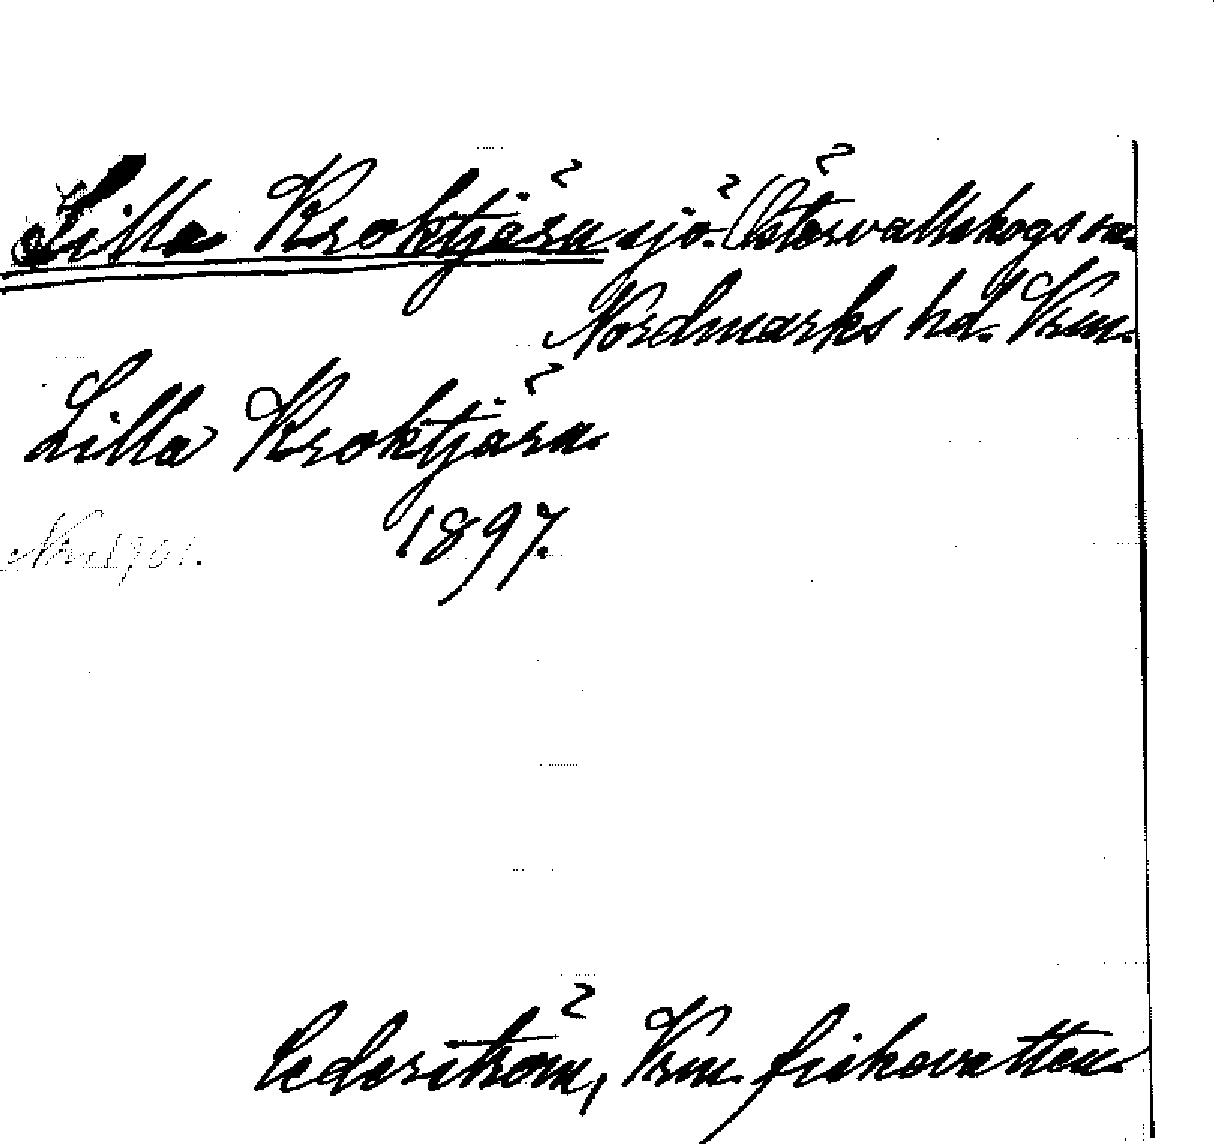 Lilla Kroktjärn sjö. Östervallskogs sn.
Nordmarks hd. Vrm.
Lilla Kroktjärn.
1897.
Cederström, Vrm. fiskevatten